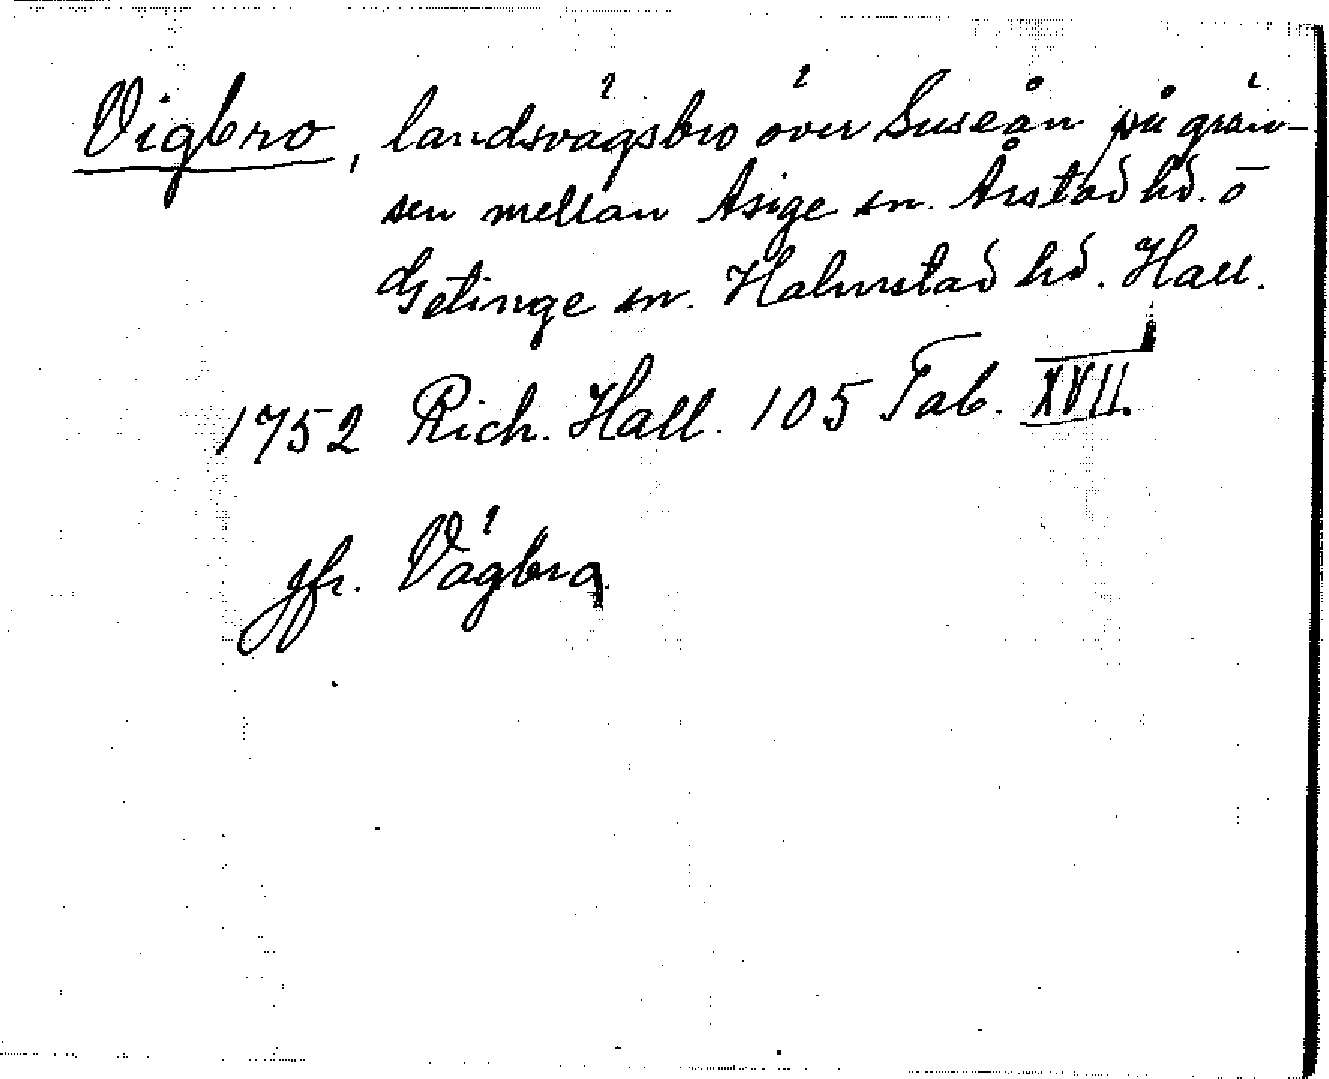 Vigbro, landsvägsbro över Suseån på grän-
sen mellan Asige sn. Årstad hd. o
Getinge sn. Halmstad hd. Hall.
1752 Rich. Hall. 105 Tab. XVII.
Jfr. Vägbro